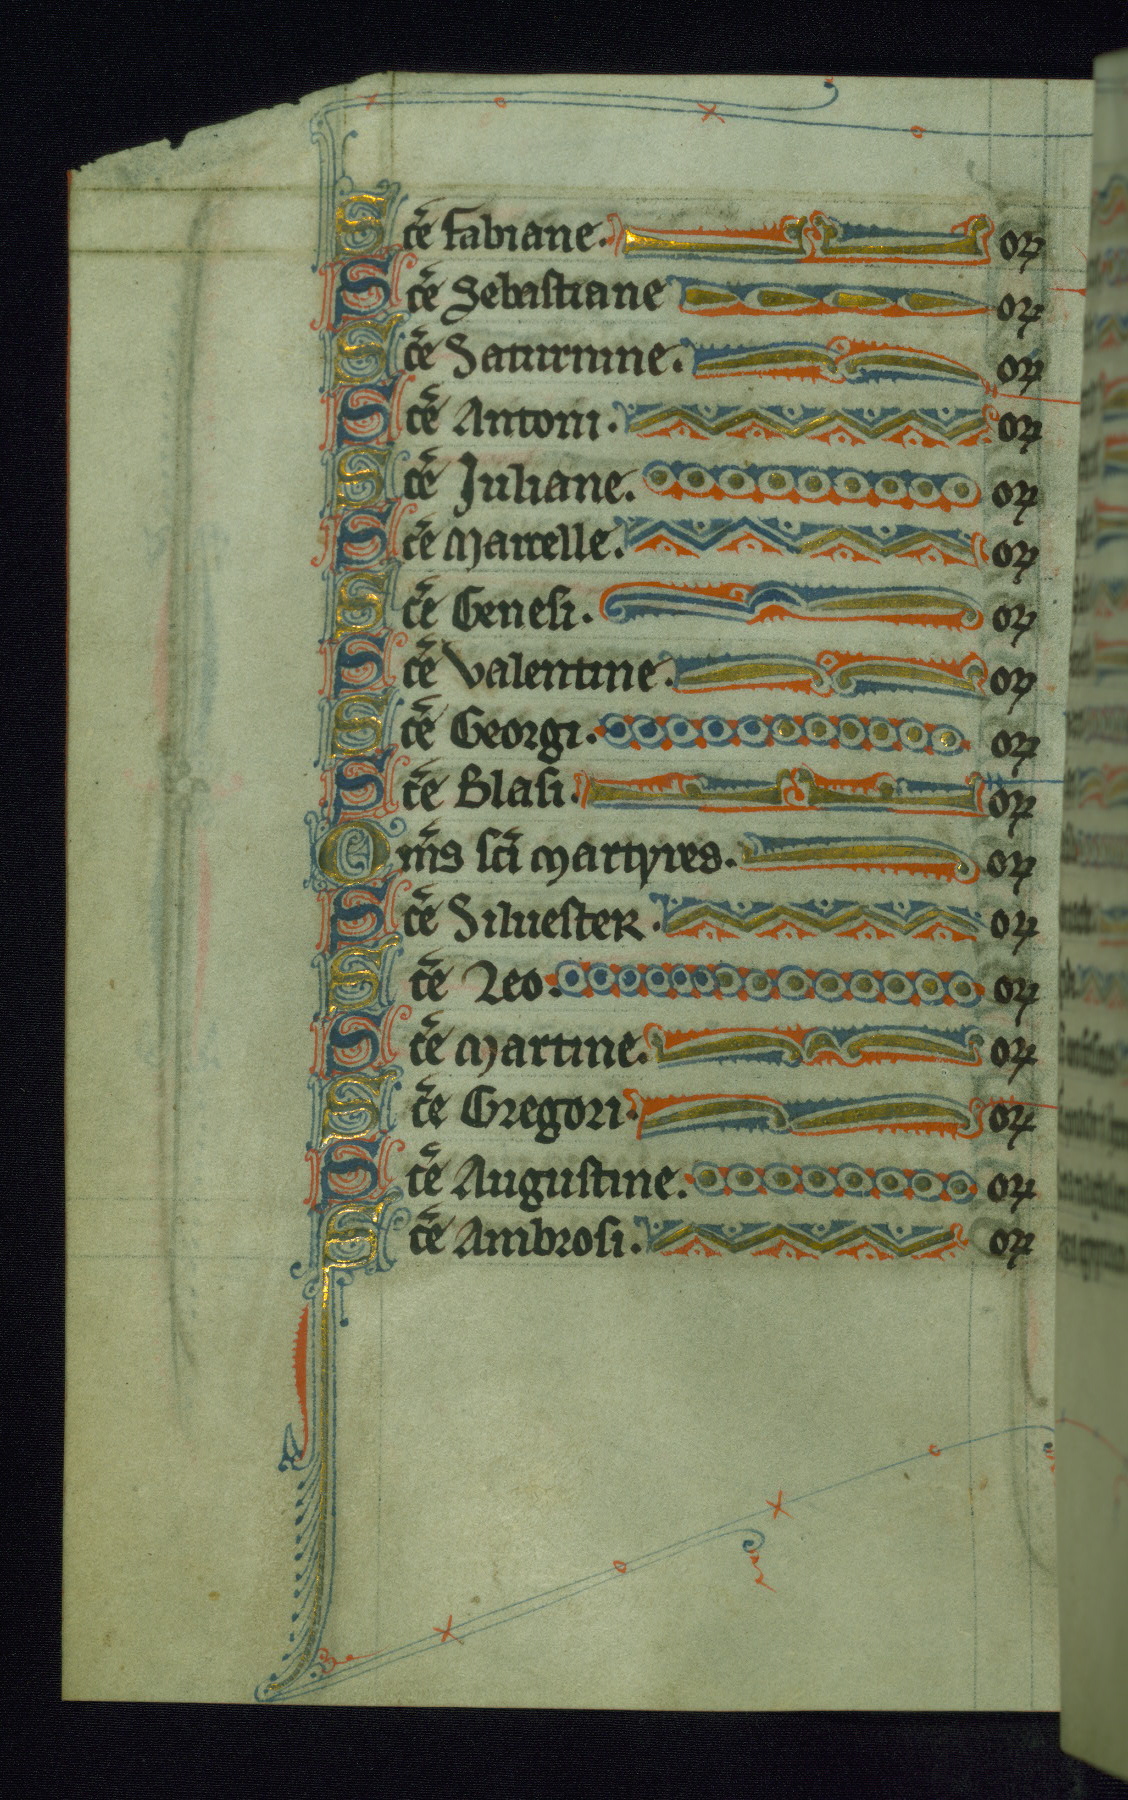 Sc̄e fabiane. oꝝ
Sc̄e Sebastiane oꝝ
Sc̄e Saturnine. oꝝ
Sc̄e Antoni. oꝝ
Sc̄e Juliane. oꝝ
Sc̄e Marcelle. oꝝ
Sc̄e Genesi. oꝝ
Sc̄e Valentine. oꝝ
Sc̄e Georgi. oꝝ
Sc̄e Blasi. oꝝ
Om̄s sc̄i martyres. oꝝ
Sc̄e Siluester. oꝝ
Sc̄e Leo. oꝝ
Sc̄e Martine. oꝝ
Sc̄e Gregori. oꝝ
Sc̄e Augustine. oꝝ
Sc̄e Ambrosi. oꝝ